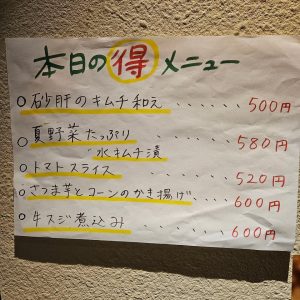 本日の得メニュー
○砂肝のキムチ和え ・・・・・・ 500円
○夏野菜たっぷり
水キムチ漬 ・・・・・ 580円
○トマトスライス ・・・・・・ 520円
○さつま芋とコーンのかき揚げ ・・ 600円
○牛スジ煮込み ・・・・・・・ 600円